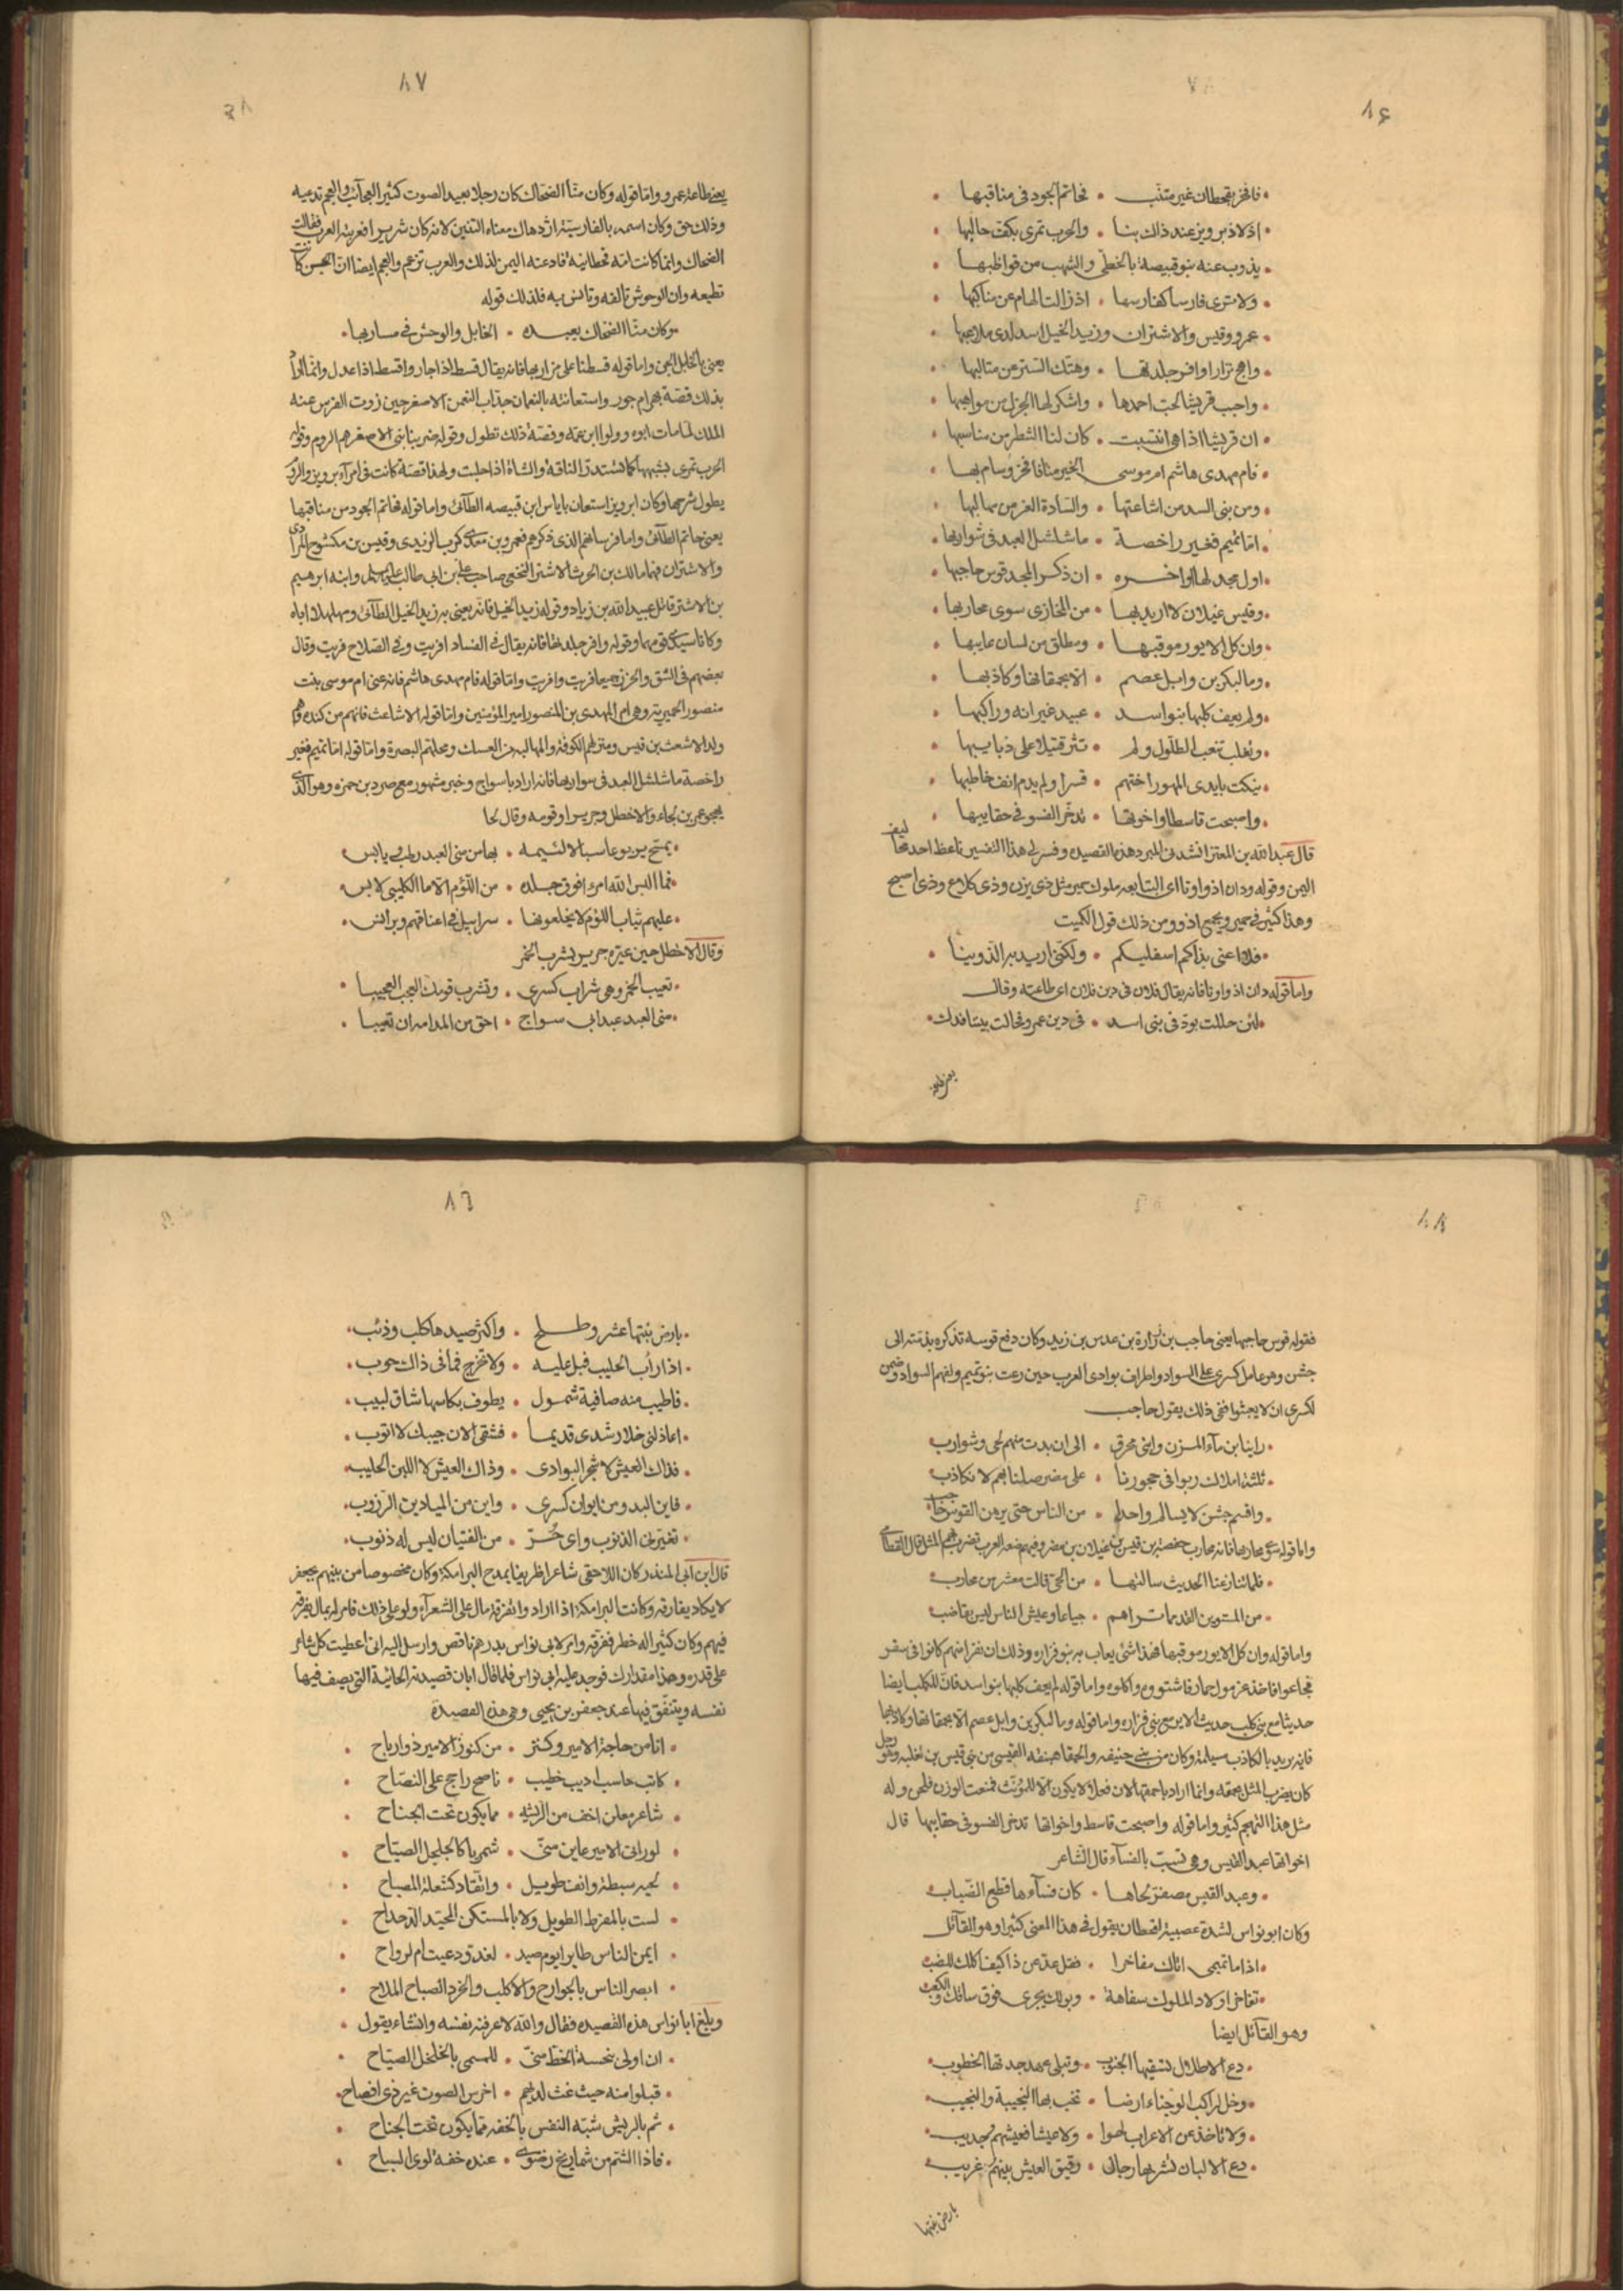 ٨٦
فافخر بقحطان غير متئب • فحاتم الجود في مناقبها
اذ لاذ برويز عند ذاك بنا • والحرب تمرى بكف حالبها
يذوب عنه بنو قبيصة بالخطى والشهب من قواظبها
ولا ترى فارسا كفارسها • اذ زالت الهام عن مناكبها
عمرو وقيس والاشتران وزيد الخيل اسد لدى ملاعبها
واهج نزارا وافر جلدتها • وهتك الستر عن مثالبها
واحب قريشا لحب احمدها • واشكر لها الجزل من مواهبها
ان قريشا اذا هي انتسبت • كان لنا الشطر من مناسبها
فام مهدى هاشم ام موسى الخير منا فافخر وسام بها
ومن بنى السد من اشاعثها • والسادة الغر من مهالبها
اما تميم فغير راحضة • ما شلشل العبد في شواربها
اول مجد لها واخره • ان ذكر المجد قوس حاجبها
وقيس عيلان لا اريد بها • من المخازى سوى محاربها
وان كل الايور موقبها • ومطلق من لسان عايبها
وما لبكر بن وايل عصم • الا بحمقائها وكاذبها
ولم يعف كلبها بنو اسد • عبيد عيرانة وراكبها
وتغلب تنعب الطلول ولم • تثر قتيلا على ذبايبها
نيكت بايدى المهور اختهم • قسرا ولم يدم انف خاطبها
واصبحت قاسطا واخوتها • تدخر الفسو في حقايبها
قال عبد الله بن المعتز انشدنى المبرد هذه القصيده وفسر لى هذا التفسير
اليمن وقوله ودان اذواونا اى التبابعه ملوك حمير مثل ذى يزن وذى كلاع وذى اصبح
وهذا كثير في حمير ويجمع اذوو ومن ذلك قول الكميت
فلا اعنى بذاكم اسفليكم • ولكنى اريد به الذوينا
واما قوله دان اذواونا فانه يقال فلان في دين فلان اى طاعته وقال
لئن حللت بود في بنى اسد • في دين عمرو وحالت بيننا فدك
يعنى طاعة
٨٧
يعنى طاعة عمرو واما قوله وكان منا الضحاك كان رجلا بعيد الصوت كثير العجائب والعجم تدعيه
وذلك حق وكان اسمه بالفارسية ازدهاك معناه التنين لانه كان شريرا فعربته العرب فقالت
الضحاك وانما كانت امه قحطانية فادعته اليمن لذلك والعرب تزعم والعجم ايضا ان الجن كانت
تطيعه وان الوحوش تالفه وتانس به فلذلك قوله
وكان منا الضحاك يعبده • الخابل والوحش في مساربها
يعنى بالخابل الجن واما قوله قسطنا على مزاربها فانه يقال قسط اذا جار واقسط اذا عدل وانما ارادوا
بذلك قصة بهرام جور واستعانته بالنعمان
الملك لما مات ابوه وولوا ابن عمه وقصة ذلك تطول وقوله ضربنا بنى الاصفر هم الروم وقوله
الحرب تمرى يشبهها كما تستدر الناقة والشاة اذا حلبت ولهذا قصة كانت في امر ابرويز والروم
يطول شرحها وكان ابرويز استعان باياس ابن قبيصه الطائى واما قوله فحاتم الجود من مناقبها
يعنى حاتم الطائى واما فرسانهم الذى ذكرهم فعمرو بن معدى كرب الزبيدى وقيس بن مكشوح المرادى
والاشتران فهما مالك بن الحرث الاشتر النخعى صاحب على بن ابى طالب عليه السلم وابنه ابرهيم
بن الاشتر قاتل عبيد الله بن زياد وقوله زيد الخيل فانه يعنى به زيد الخيل الطائى ومهلهلا اباه
وكانا سيدى قومهما وقوله وافر جلدتها فانه يقال في الفساد افريت وفى الصلاح فريت وقال
بعضهم في الشق والخرز جميعا فريت وافريت واما قوله فام مهدى هاشم فانه عنى ام موسى بنت
منصور الحميرية وهى ام المهدى بن المنصور امير المؤمنين واما قوله الاشاعث فانهم من كنده وهم
ولد الاشعث بن قيس ومنزلهم الكوفة والمهالبه من العسك ومحلتهم البصرة واما قوله اما تميم فغير
راحضة ما شلشل العبد في شواربها فانه اراد باسواج وخبر مشهور مع صرد بن حمزه وهو الذى
يهجو عمر بن لجاء والاخطل وجريرا وقومه وقال لجا
يمسح يربوعا سبالا لئيمه • بها من منى العبد رطب ويابس
فما البس الله امرا فوق جلده • من اللؤم الا ما الكليبى لابس
عليهم ثياب اللؤم لا يخلعونها • سرابيل في اعناقهم وبرانس
وقال الاخطل حين عيره جرير بشرب الخمر
تعيب الخمر وهى شراب كسرى • وتشرب قومك العجب العجيبا
منى العبد عبد ابى سواج • احق من المدامه ان تعيبا
٨٨
فقوله قوس حاجبها يعنى حاجب بن زرارة بن عدس بن زيد وكان دفع قوسه تذكره بذمته الى
جشن وهو عامل كسرى على السواد واطراف بوادى العرب حين رعت بنو تميم والفهم السواد وضمن
لكسرى ان لا يعيثوا ففى ذلك يقول حاجب
رابنا ابن مآء المزن وابنى محرق • الى ان بدت منهم لحى وشوارب
ثلثة املاك ربوا في حجورنا • على مضر صلنا بهم لا نكاذب
واقسم جشن لا يسالم واحدا • من الناس حتى يرهن القوس حاجب
واما قوله سوى محاربها فانه محارب بن خصفة بن قيس بن عيلان بن مضر وفيهم ضعه العرب تضرب بهم المثل قال القطامى
فلما تنازعنا الحديث سالتها • من الحى قالت معشر من محارب
من المشتوين القد مما تراهم • جياعا وعيش الناس ليس بناضب
واما قوله وان كل الايور موقبها فهذا شئ يعاب به بنو فزاره وذلك ان نفرا منهم كانوا في سفر
فجاعوا فاخذ غرمول حمار فاشتووه واكلوه واما قوله لم يعف كلبها بنو اسد فان للكلب ايضا
حديثا مع بنى كلب حديث الاير مع بنى فزاره واما قوله وما لبكر بن وايل عصم الا بحمقائها وكاذبها
فانه يريد بالكاذب مسيلمة وكان من بنى حنيفه والحمقا هبنقه القيسى من بنى قيس بن ثعلبه وهو رجل
كان يضرب المثل بحمقه وانما اراد باحمقها لان فعلاء لا يكون الا للمؤنث فمنعت الوزن فلحن وله
مثل هذا التهجم كثير واما قوله واصبحت قاسط واخواتها تدخر الفسو في حقايبها قال
اخواتها عبد القيس وهى تسب بالفسآء قال الشاعر
وعبد القيس مصفر لحاها • كان فسآءها قطع الضباب
وكان ابو نواس لشدة عصبيته لقحطان يقول في هذا المعنى كثيرا وهو القآئل
اذا ما تميمى اتاك مفاخرا • فقل عد عن ذا كيف اكلك للضب
تفاخر اولاد الملوك سفاهة • وبولك يجرى فوق ساقك والكعب
وهو القآئل ايضا
دع الاطلال تسفيها الجنوب • وتبلى عهد جدتها الخطوب
وخل لراكب الوجناء ارضا • تخب بها النجيبة والنجيب
ولا تاخذ عن الاعراب لهوا • ولا عيشا فعيشهم جديب
دع الالبان تشربها رجال • رقيق العيش بينهم غريب
بارض نبتها
٨٩
بارض نبتها عشر وطلح • واكثر صيدها كلب وذئب
اذا راب الحليب فبل عليه • ولا تحرج فما في ذاك حوب
فاطيب منه صافية شمول • يطوف بكاسها شاق لبيب
اعاذلتى خلا رشدى قديما • فشقى الان جيبك لا اتوب
فذاك العيش لا شجر البوادى • وذاك العيش لا اللبن الحليب
فاين البدو من ايوان كسرى • واين من الميادين الرزوب
تعيرنى الذنوب واى حُرّ • من الفتيان ليس له ذنوب
قال ابن ابى المنذر كان اللاحقى شاعرا ظريفا يمدح البرامكة وكان مخصوصا من بينهم بجعفر
لا يكاد يفارقه وكانت البرامكة اذا اراد واتفرقة مال على الشعرآء ولوه على ذلك فامر له بمال يفرقه
فيهم وكان كثيرا له خطر ففرقه وامر لابى نواس بدرهم ناقص وارسل اليه انى اعطيت كل شاعر
على قدره وهذا مقدارك فوجد عليه ابى نواس فلما قال ابان قصيدته الحائية التى يصف فيها
نفسه ويتنفق فيها عند جعفر بن يحيى وهى هذه القصيدة
انا من حاجة الامير وكنز • من كنوز الامير ذو ارباح
كاتب حاسب اديب خطيب • ناصح راجح على النصاح
شاعر مفلق اخف من الريشه • مما يكون تحت الجناح
لو رانى الامير عاين منى • شمريا كالجلجل الصياح
لحيه سبطة وانف طويل • واتقاد كشعلة المصباح
لست بالمفرط الطويل ولا بالمستكن المجيد الدحداح
ايمن الناس طايرا يوم صيد • لغدو دعيت ام لرواح
ابصر الناس بالجوارح والاكلب والخرد الصباح الملاح
وبلغ ابا نواس هذه القصيده فقال والله لاعرفنه نفسه وانشاء يقول
ان اولى بخسة الحظ منى • للمسمى بالجلجل الصياح
قبلوا منه حيث غث لديهم • اخرس الصوت غير ذى افصاح
ثم بالريش شبه النفس بالخفه مما يكون تحت الجناح
فاذا الشم من شماريخ رضوى • عنده خفة نوى السباح